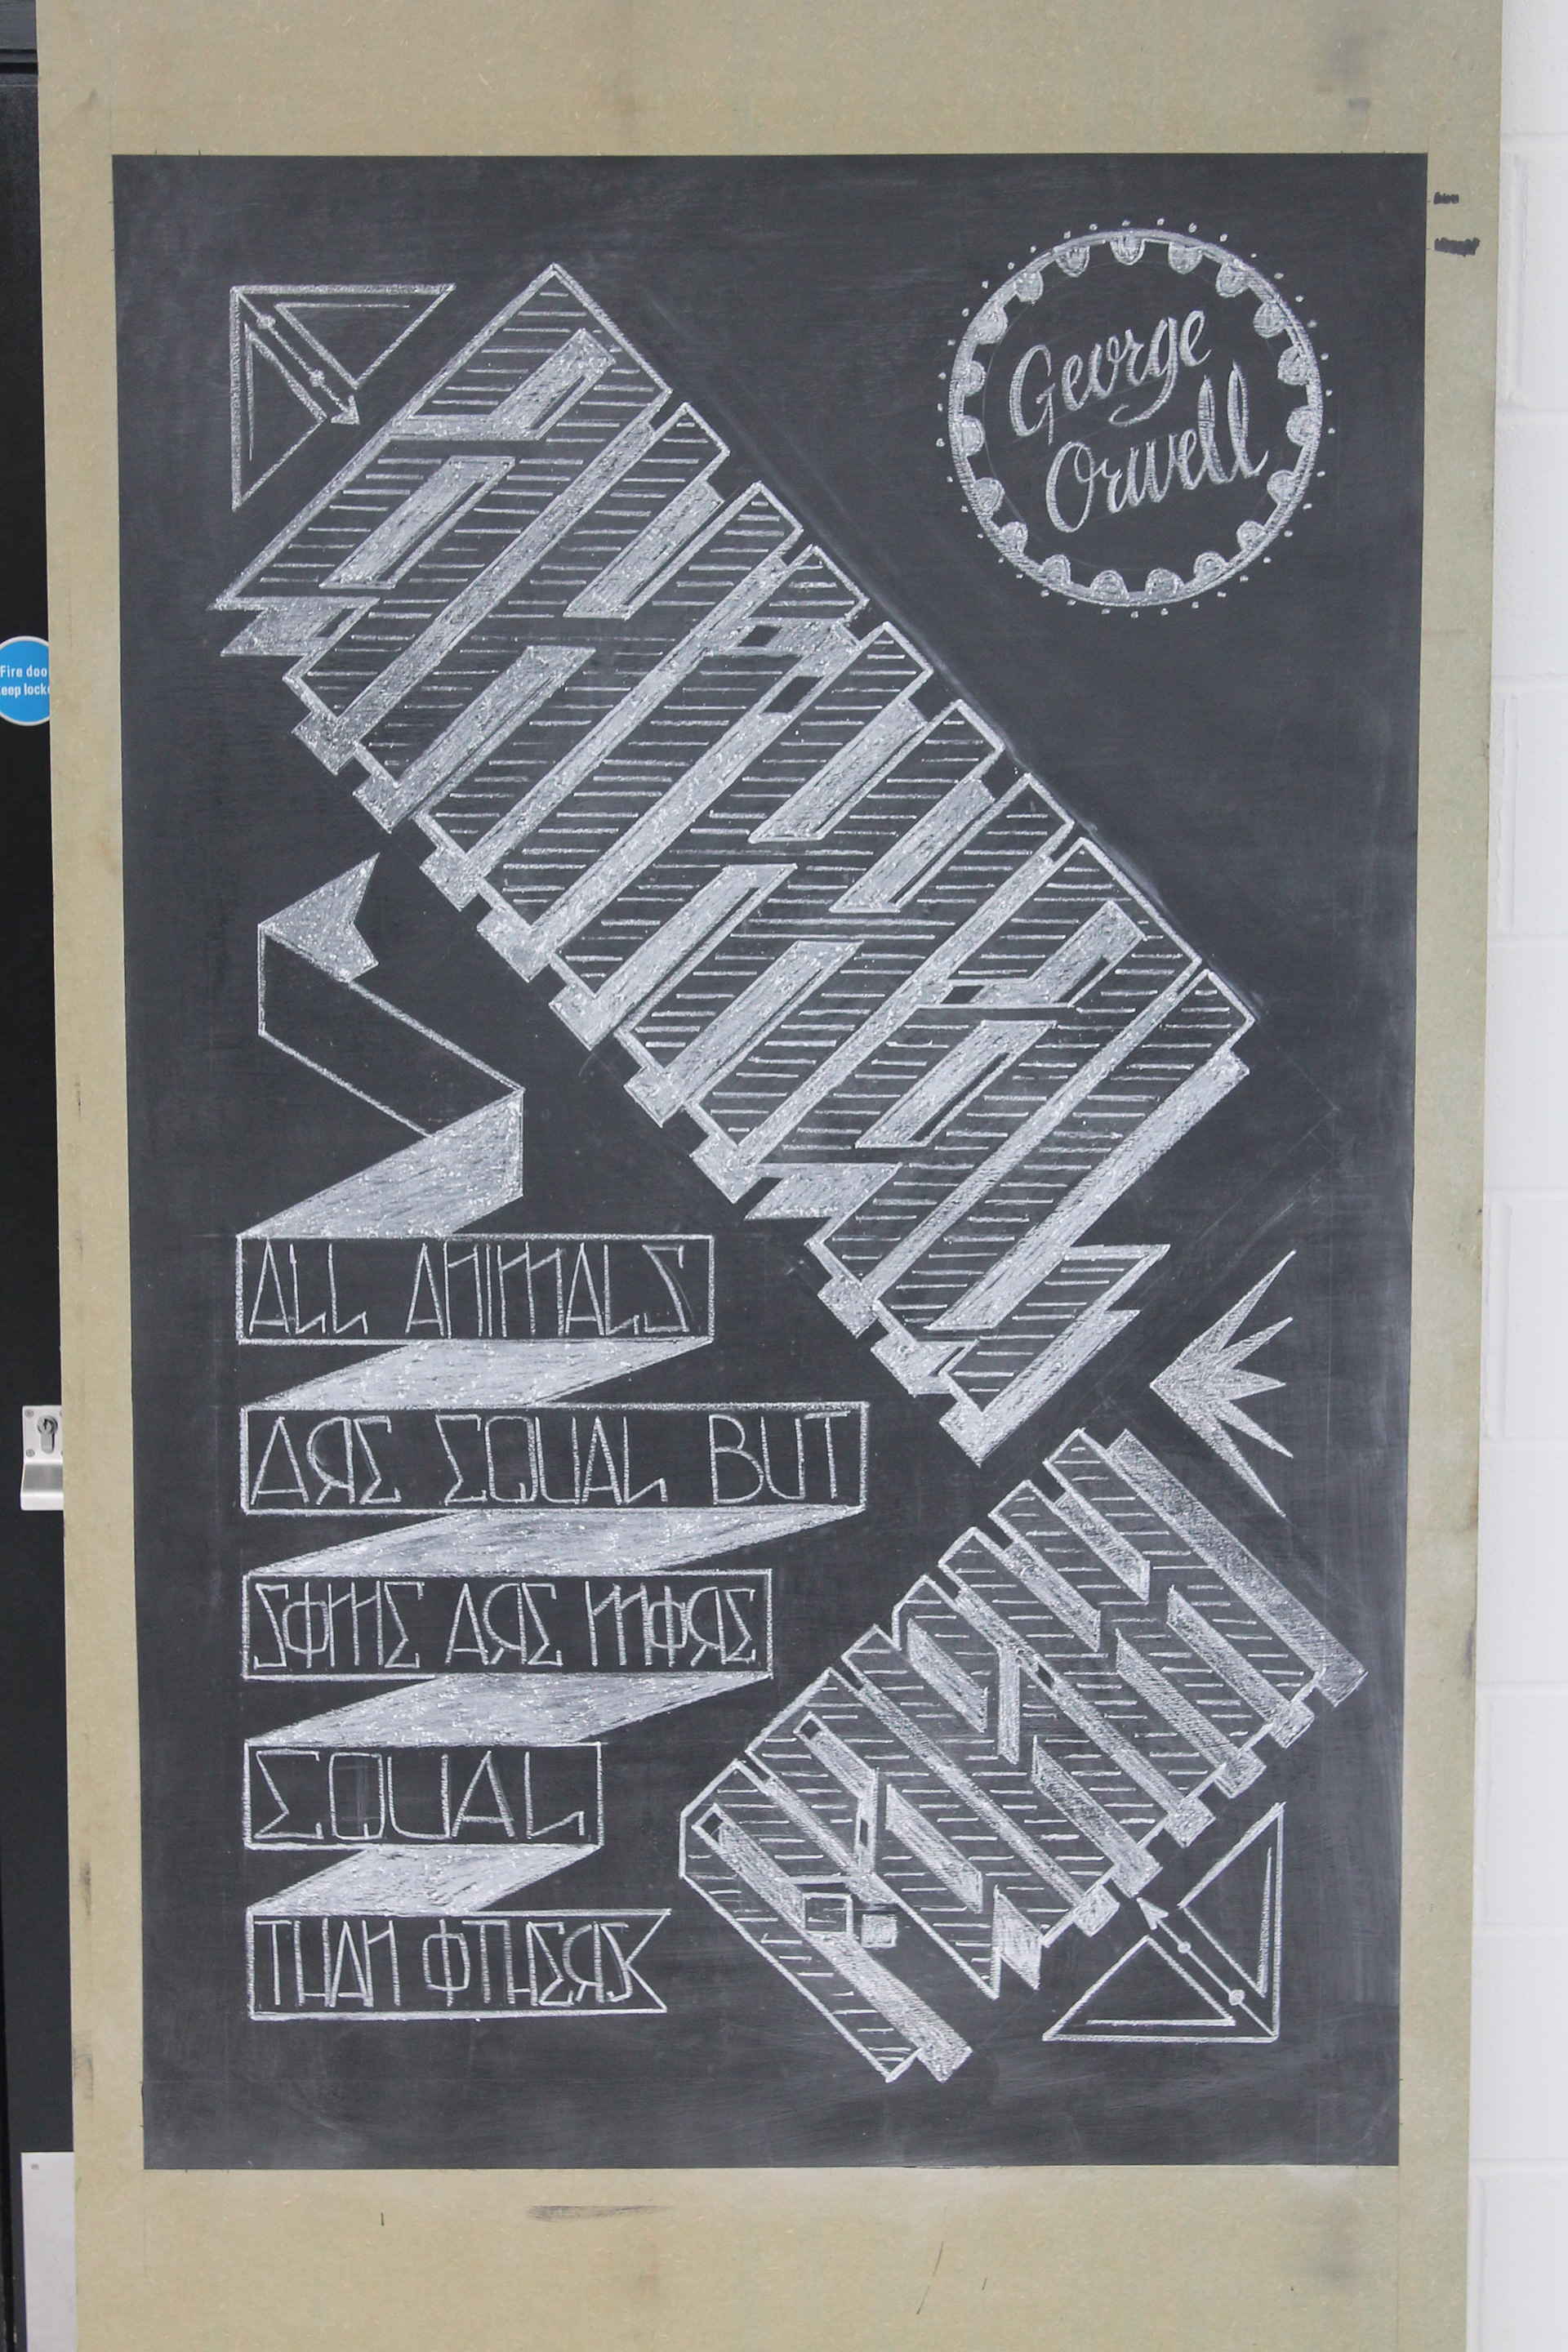 George
Orwell
ANIMAL
FARM
ALL ANIMALS
ARE EQUAL BUT
SOME ARE MORE
EQUAL
THAN OTHERS
Fire doo
eep locke